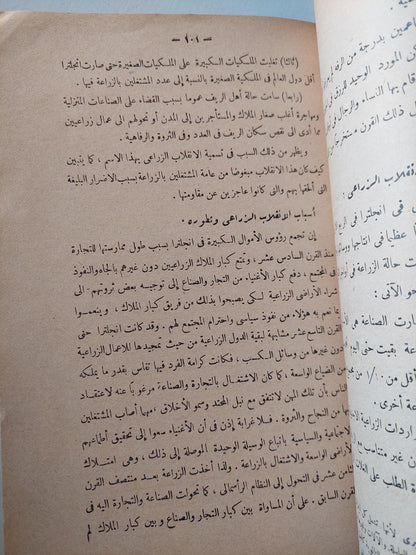 — ١٠١ —
(ثالثا) تغلبت الملكيات الكبيرة على الملكيات الصغيرة حتى صارت انجلترا
أقل دول العالم فى الملكية الصغيرة بالنسبة إلى عدد المشتغلين بالزراعة فيها .
(رابعا) ساءت حالة أهل الريف عموما بسبب القضاء على الصناعات المنزلية
ومهاجرة أغلب صغار الملاك والمستأجرين إلى المدن أو تحولهم الى عمال زراعيين
مما أدى الى نقص سكان الريف فى العدد وفى الثروة والرفاهية .
ويظهر من ذلك السبب فى تسمية الانقلاب الزراعى بهذا الاسم ، كما يتبين
كيف كان هذا الانقلاب مبغوضا من عامة المشتغلين بالزراعة بسبب الاضرار البليغة
التى ألحقها بهم والتى كانوا عاجزين عن مقاومتها .
أسباب الانقلاب الزراعى وتطوره :
إن تجمع رؤوس الأموال الكبيرة فى انجلترا بسبب طول ممارستها للتجارة
منذ القرن السادس عشر ، وتمتع كبار الملاك الزراعيين دون غيرهم بالجاه والنفوذ
فى المجتمع ، دفع كبار الأغنياء من التجار والصناع إلى توجيه بعض ثروتهم الى
شراء الأراضى الزراعية لكى يصبحوا بذلك من فريق كبار الملاك ، وينعموا
بما نعم به هؤلاء من نفوذ سياسى واحترام المجتمع لهم . وقد كانت انجلترا حتى
القرن التاسع عشر مشابهة لبقية الدول الزراعية من حيث تمجيدها للاعمال الزراعية
دون غيرها من وسائل الكسب ، فكانت كرامة الفرد فيها تقاس بقدر ما يملكه
من الضياع الواسعة ، كما كان الاشتغال بالتجارة والصناعة مرغوبا عنه لاعتقاد
الناس بأن تلك المهن لا تتفق مع نبل المحتد وسمو الأخلاق ، مهما أصاب المشتغلين
من النجاح والثروة . فلا غرابة إذن فى أن الأغنياء سعوا إلى تحقيق أطماعهم
الاجتماعية والسياسية باتباع الوسيلة الوحيدة الموصلة إلى ذلك ، وهى امتلاك
الأراضى الواسعة والاشتغال بالزراعة . ولقد أخذت الزراعة بعد منتصف القرن
الثامن عشر فى التحول إلى النظام الرأسمالى ، كما تحولت الصناعة والتجارة اليه فى
القرن السابق . على أن المساواة بين كبار التجار والصناع وبين كبار الملاك لم